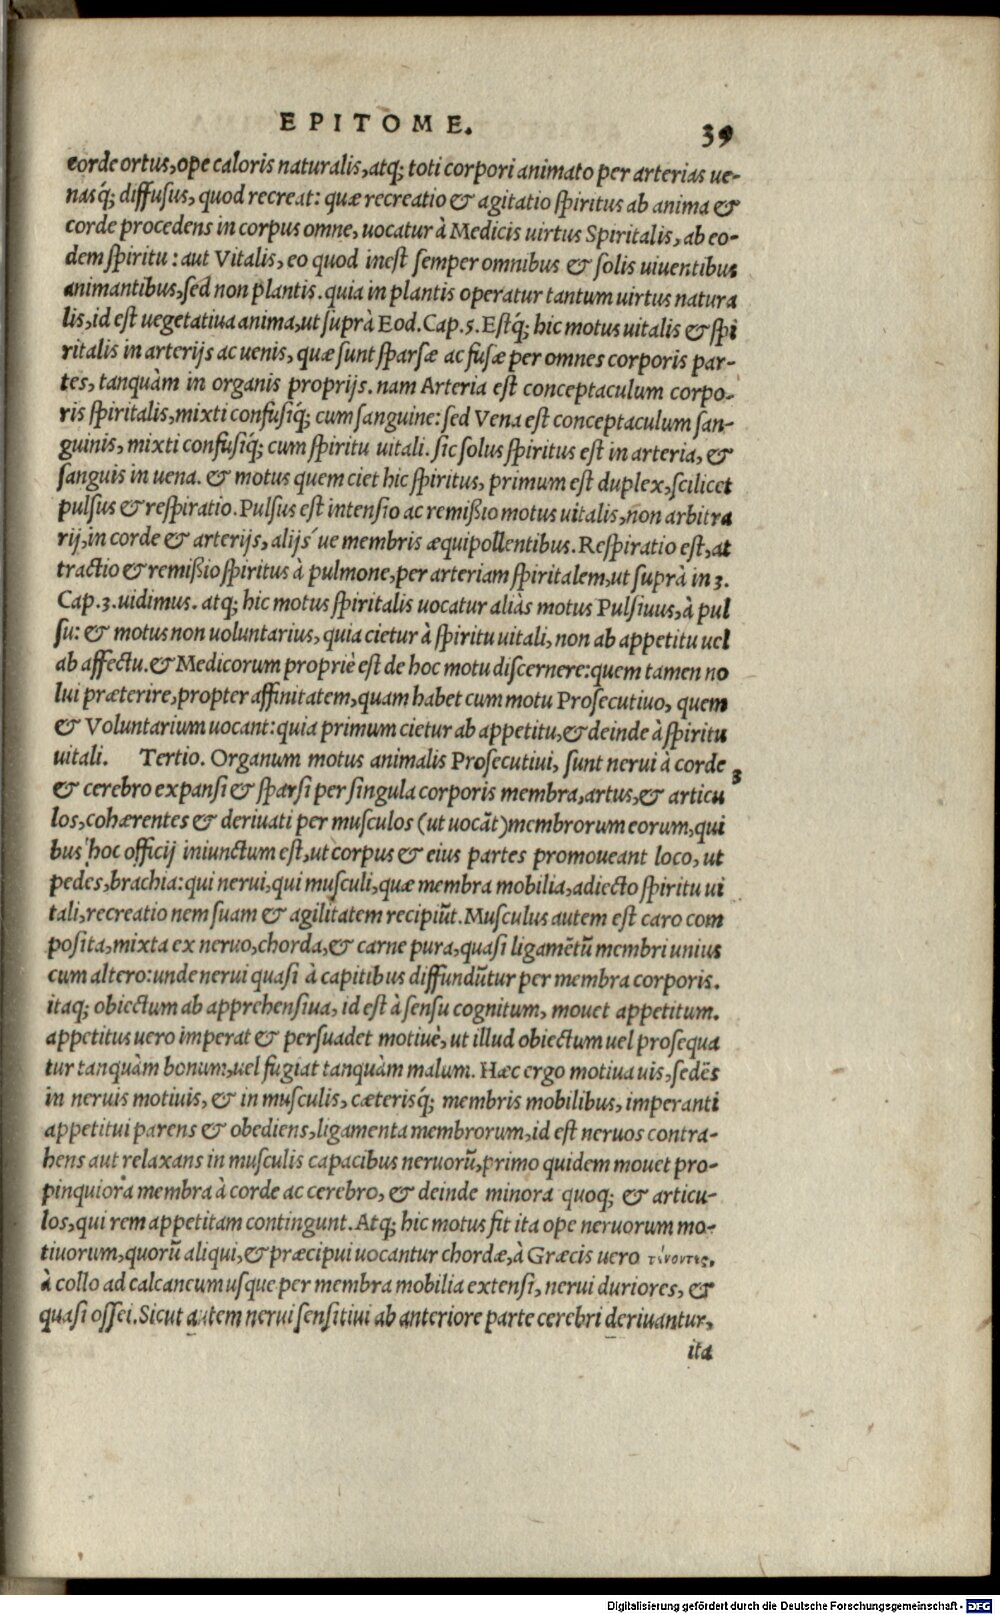 EPITOME. 39
corde ortus, ope caloris naturalis, atq; toti corpori animato per arterias ue-
nasq́; diffusus, quod recreat: quæ recreatio & agitatio spiritus ab anima &
corde procedens in corpus omne, uocatur à Medicis uirtus Spiritalis, ab eo-
dem spiritu: aut Vitalis, eo quod inest semper omnibus & solis uiuentibus
animantibus, sed non plantis. quia in plantis operatur tantum uirtus natura
lis, id est uegetatiua anima, ut suprà Eod. Cap. 5. Estq́; hic motus uitalis & spi
ritalis in arterijs ac uenis, quæ sunt sparsæ ac fusæ per omnes corporis par-
tes, tanquàm in organis proprijs. nam Arteria est conceptaculum corpo-
ris spiritalis, mixti confusiq́; cum sanguine: sed Vena est conceptaculum san-
guinis, mixti confusiq́; cum spiritu uitali. sic solus spiritus est in arteria, &
sanguis in uena. & motus quem ciet hic spiritus, primum est duplex, scilicet
pulsus & respiratio. Pulsus est intensio ac remißio motus uitalis, non arbitra
rij, in corde & arterijs, alijs´ue membris æquipollentibus. Respiratio est, at
tractio & remißio spiritus à pulmone, per arteriam spiritalem, ut suprà in 3.
Cap. 3. uidimus. atq; hic motus spiritalis uocatur aliàs motus Pulsiuus, à pul
su: & motus non uoluntarius, quia cietur à spiritu uitali, non ab appetitu uel
ab affectu. & Medicorum propriè est de hoc motu discernere: quem tamen no
lui præterire, propter affinitatem, quam habet cum motu Prosecutiuo, quem
& Voluntarium uocant: quia primum cietur ab appetitu, & deinde à spiritu
uitali. Tertio. Organum motus animalis Prosecutiui, sunt nerui à corde 3
& cerebro expansi & sparsi per singula corporis membra, artus, & articu
los, cohærentes & deriuati per musculos (ut uocãt) membrorum eorum, qui
bus hoc officij iniunctum est, ut corpus & eius partes promoueant loco, ut
pedes, brachia: qui nerui, qui musculi, quæ membra mobilia, adiecto spiritu ui
tali, recreatio nem suam & agilitatem recipiũt. Musculus autem est caro com
posita, mixta ex neruo, chorda, & carne pura, quasi ligamẽtũ membri unius
cum altero: unde nerui quasi à capitibus diffundũtur per membra corporis.
itaq; obiectum ab apprehensiua, id est à sensu cognitum, mouet appetitum.
appetitus uero imperat & persuadet motiuè, ut illud obiectum uel prosequa
tur tanquàm bonum, uel fugiat tanquàm malum. Hæc ergo motiua uis, sedẽs
in neruis motiuis, & in musculis, cæterisq́; membris mobilibus, imperanti
appetitui parens & obediens, ligamenta membrorum, id est neruos contra-
hens aut relaxans in musculis capacibus neruorũ, primo quidem mouet pro-
pinquiora membra à corde ac cerebro, & deinde minora quoq; & articu-
los, qui rem appetitam contingunt. Atq; hic motus fit ita ope neruorum mo-
tiuorum, quorũ aliqui, & præcipui uocantur chordæ, à Græcis uero τένοντες,
à collo ad calcaneum usque per membra mobilia extensi, nerui duriores, &
quasi ossei. Sicut autem nerui sensitiui ab anteriore parte cerebri deriuantur,
ita
Digitalisierung gefördert durch die Deutsche Forschungsgemeinschaft - DFG